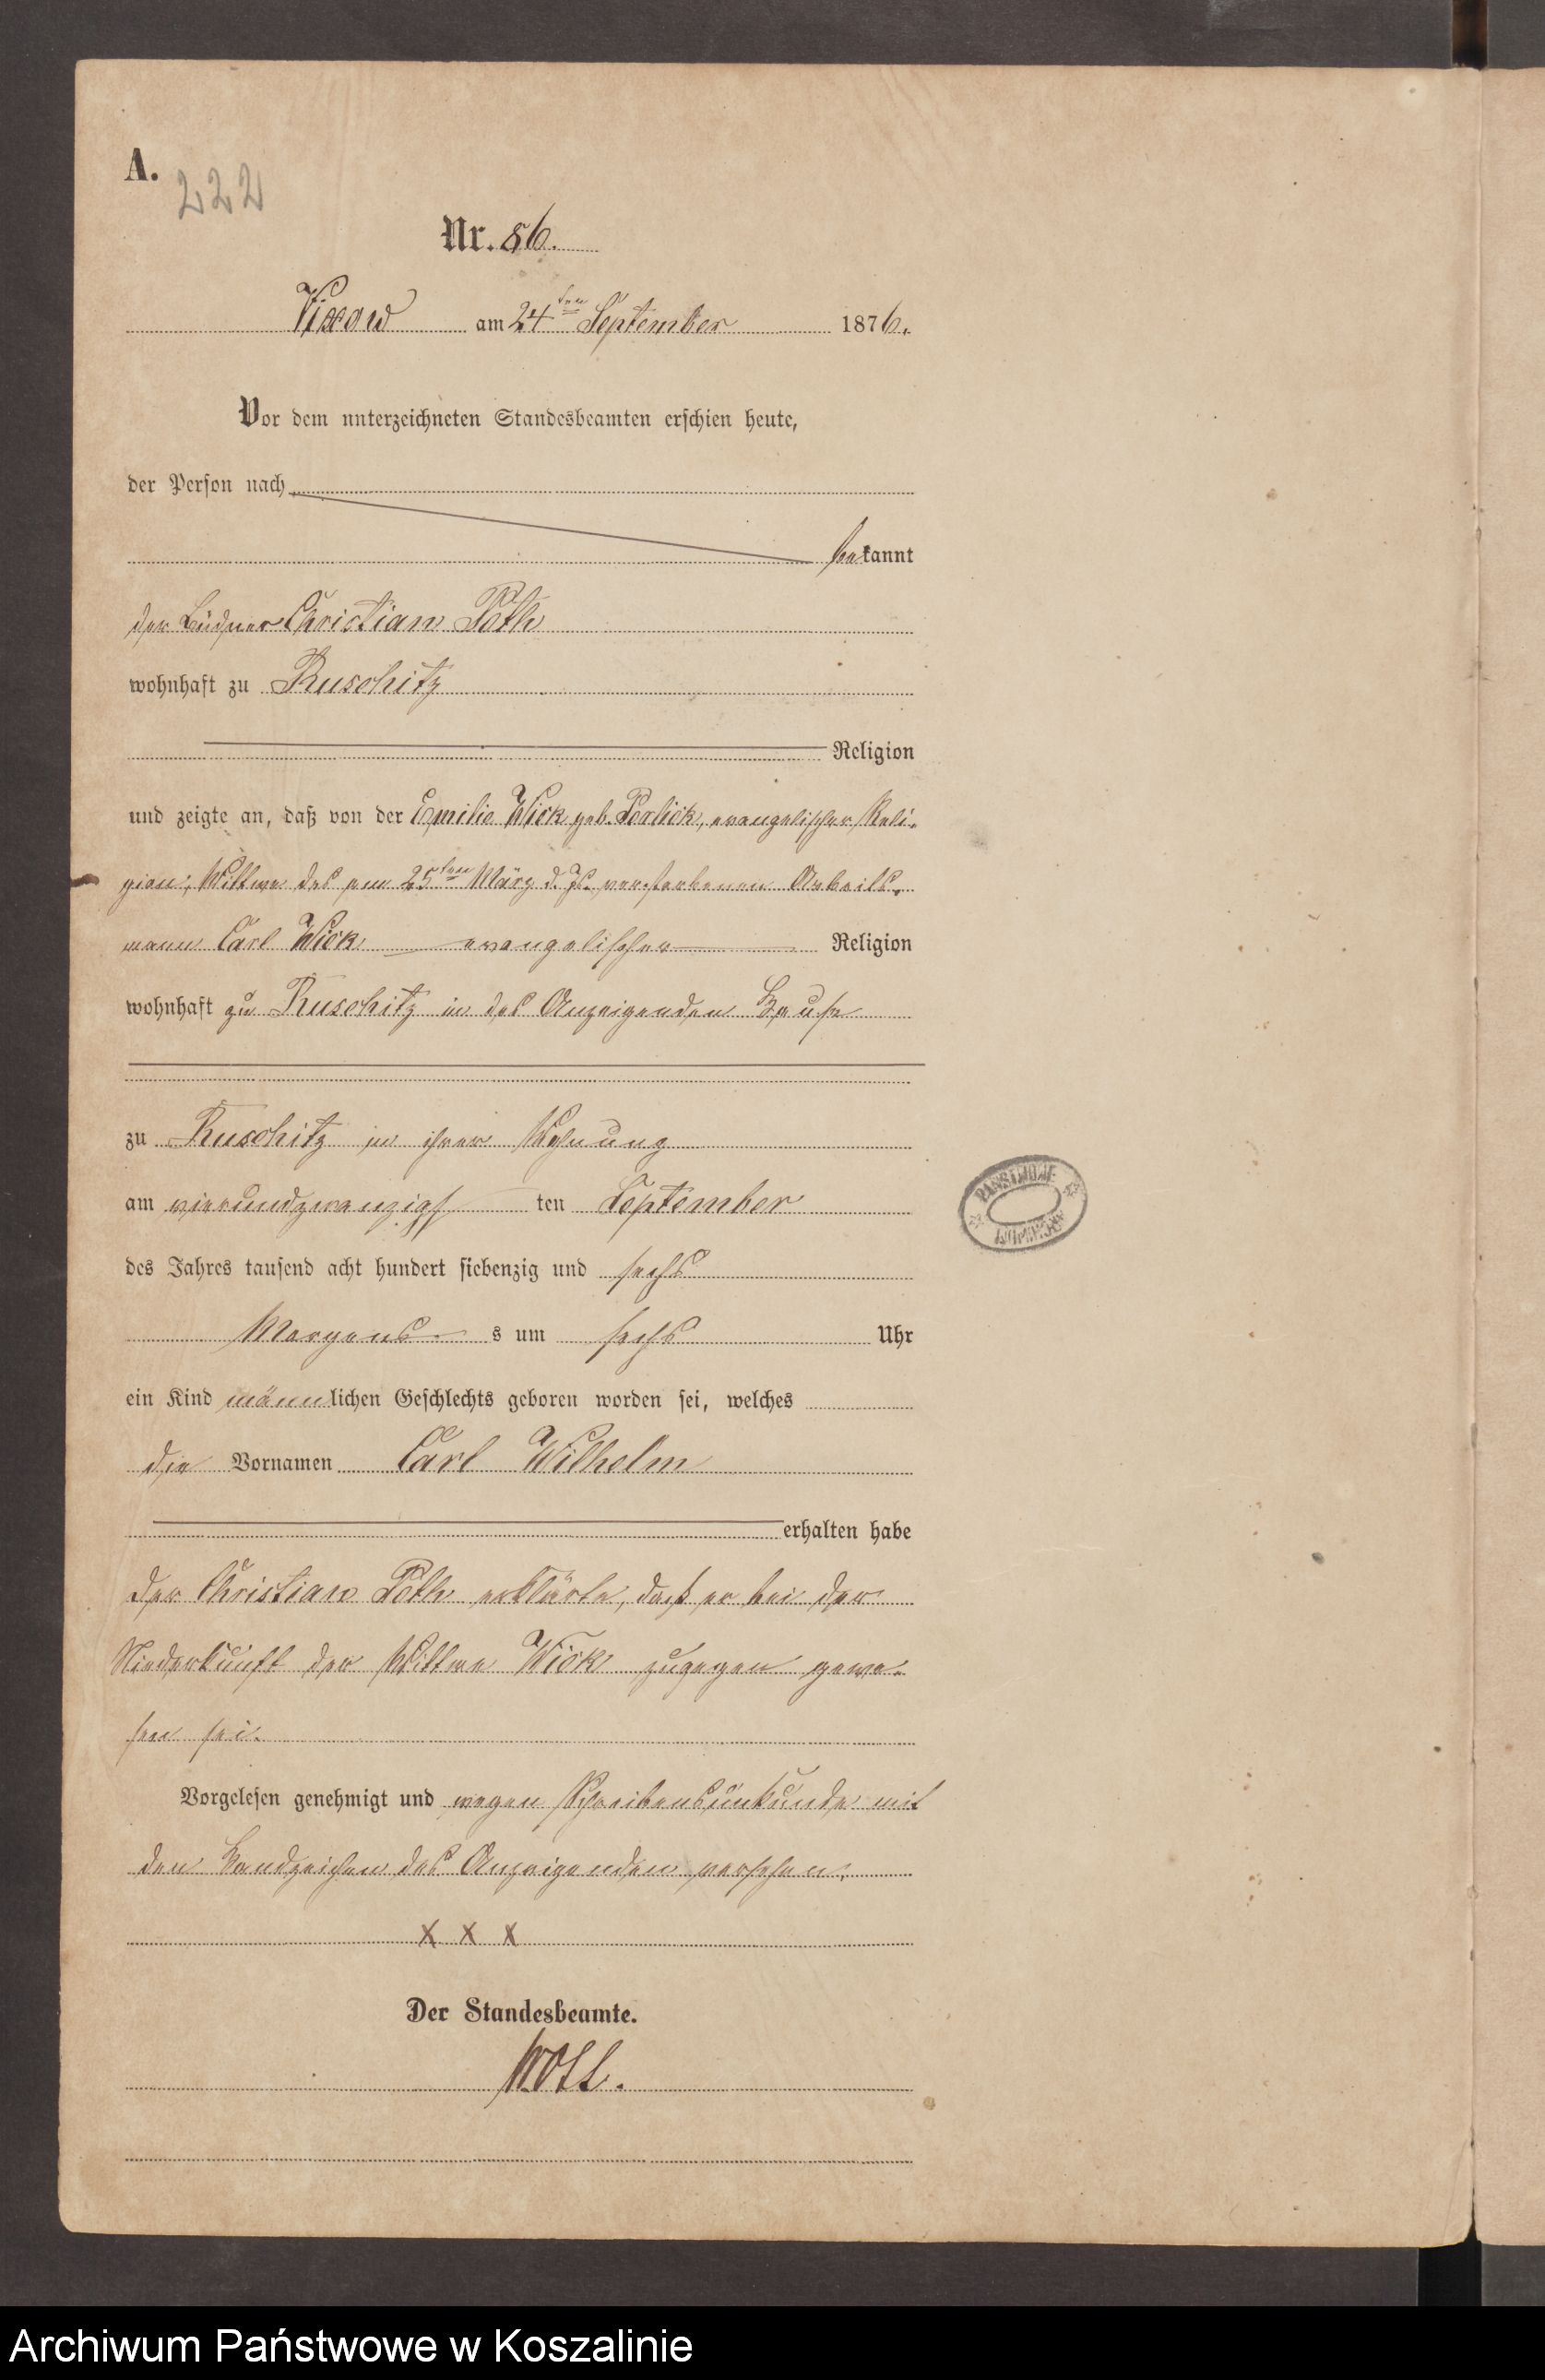 A.
222
Nr. 86.
Vixow am 24ten September 1876.
Vor dem unterzeichneten Standesbeamten erschien heute,
der Person nach
bekannt
der Büdner Christian Poth
wohnhaft zu Ruschitz
Religion
und zeigte an, daß von der Emilie Wick geb. Perlick, evangelischer Reli-
gion, Wittwe des am 25ten März d. Js. verstorbenen Arbeits-
mann Carl Wick evangelischer Religion
wohnhaft zu Ruschitz in des Anzeigenden Hause
zu Ruschitz in ihrer Wohnung
am vierundzwanzigsten September
des Jahres tausend acht hundert siebenzig und sechs
Morgens um sechs Uhr
ein Kind männlichen Geschlechts geboren worden sei, welches
die Vornamen Carl Wilhelm
erhalten habe
Der Christian Poth erklärte, daß er bei der
Niederkunft der Wittwe Wick zugegen gewe-
sen sei.
Vorgelesen genehmigt und wegen Schreibensunkunde mit
den Handzeichen des Anzeigenden versehen.
X X X
Der Standesbeamte.
PAŃSTWOWE
ARCHIWUM
Archiwum Państwowe w Koszalinie